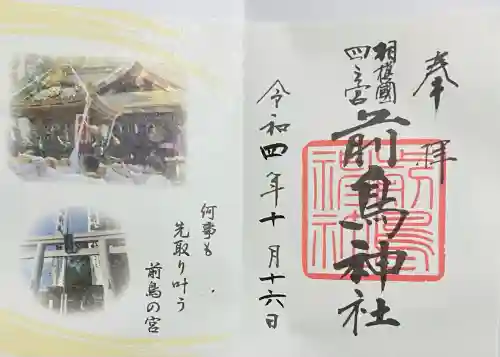 奉拝
相模國
四之宮
前鳥神社
令和四年十月十六日
何事も
先取り叶う
前鳥の宮